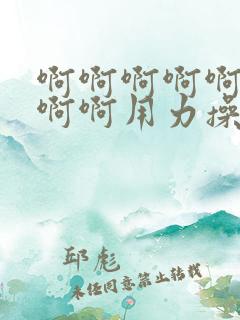 啊啊啊啊啊
啊啊用力操
邱彪
未经同意禁止转载